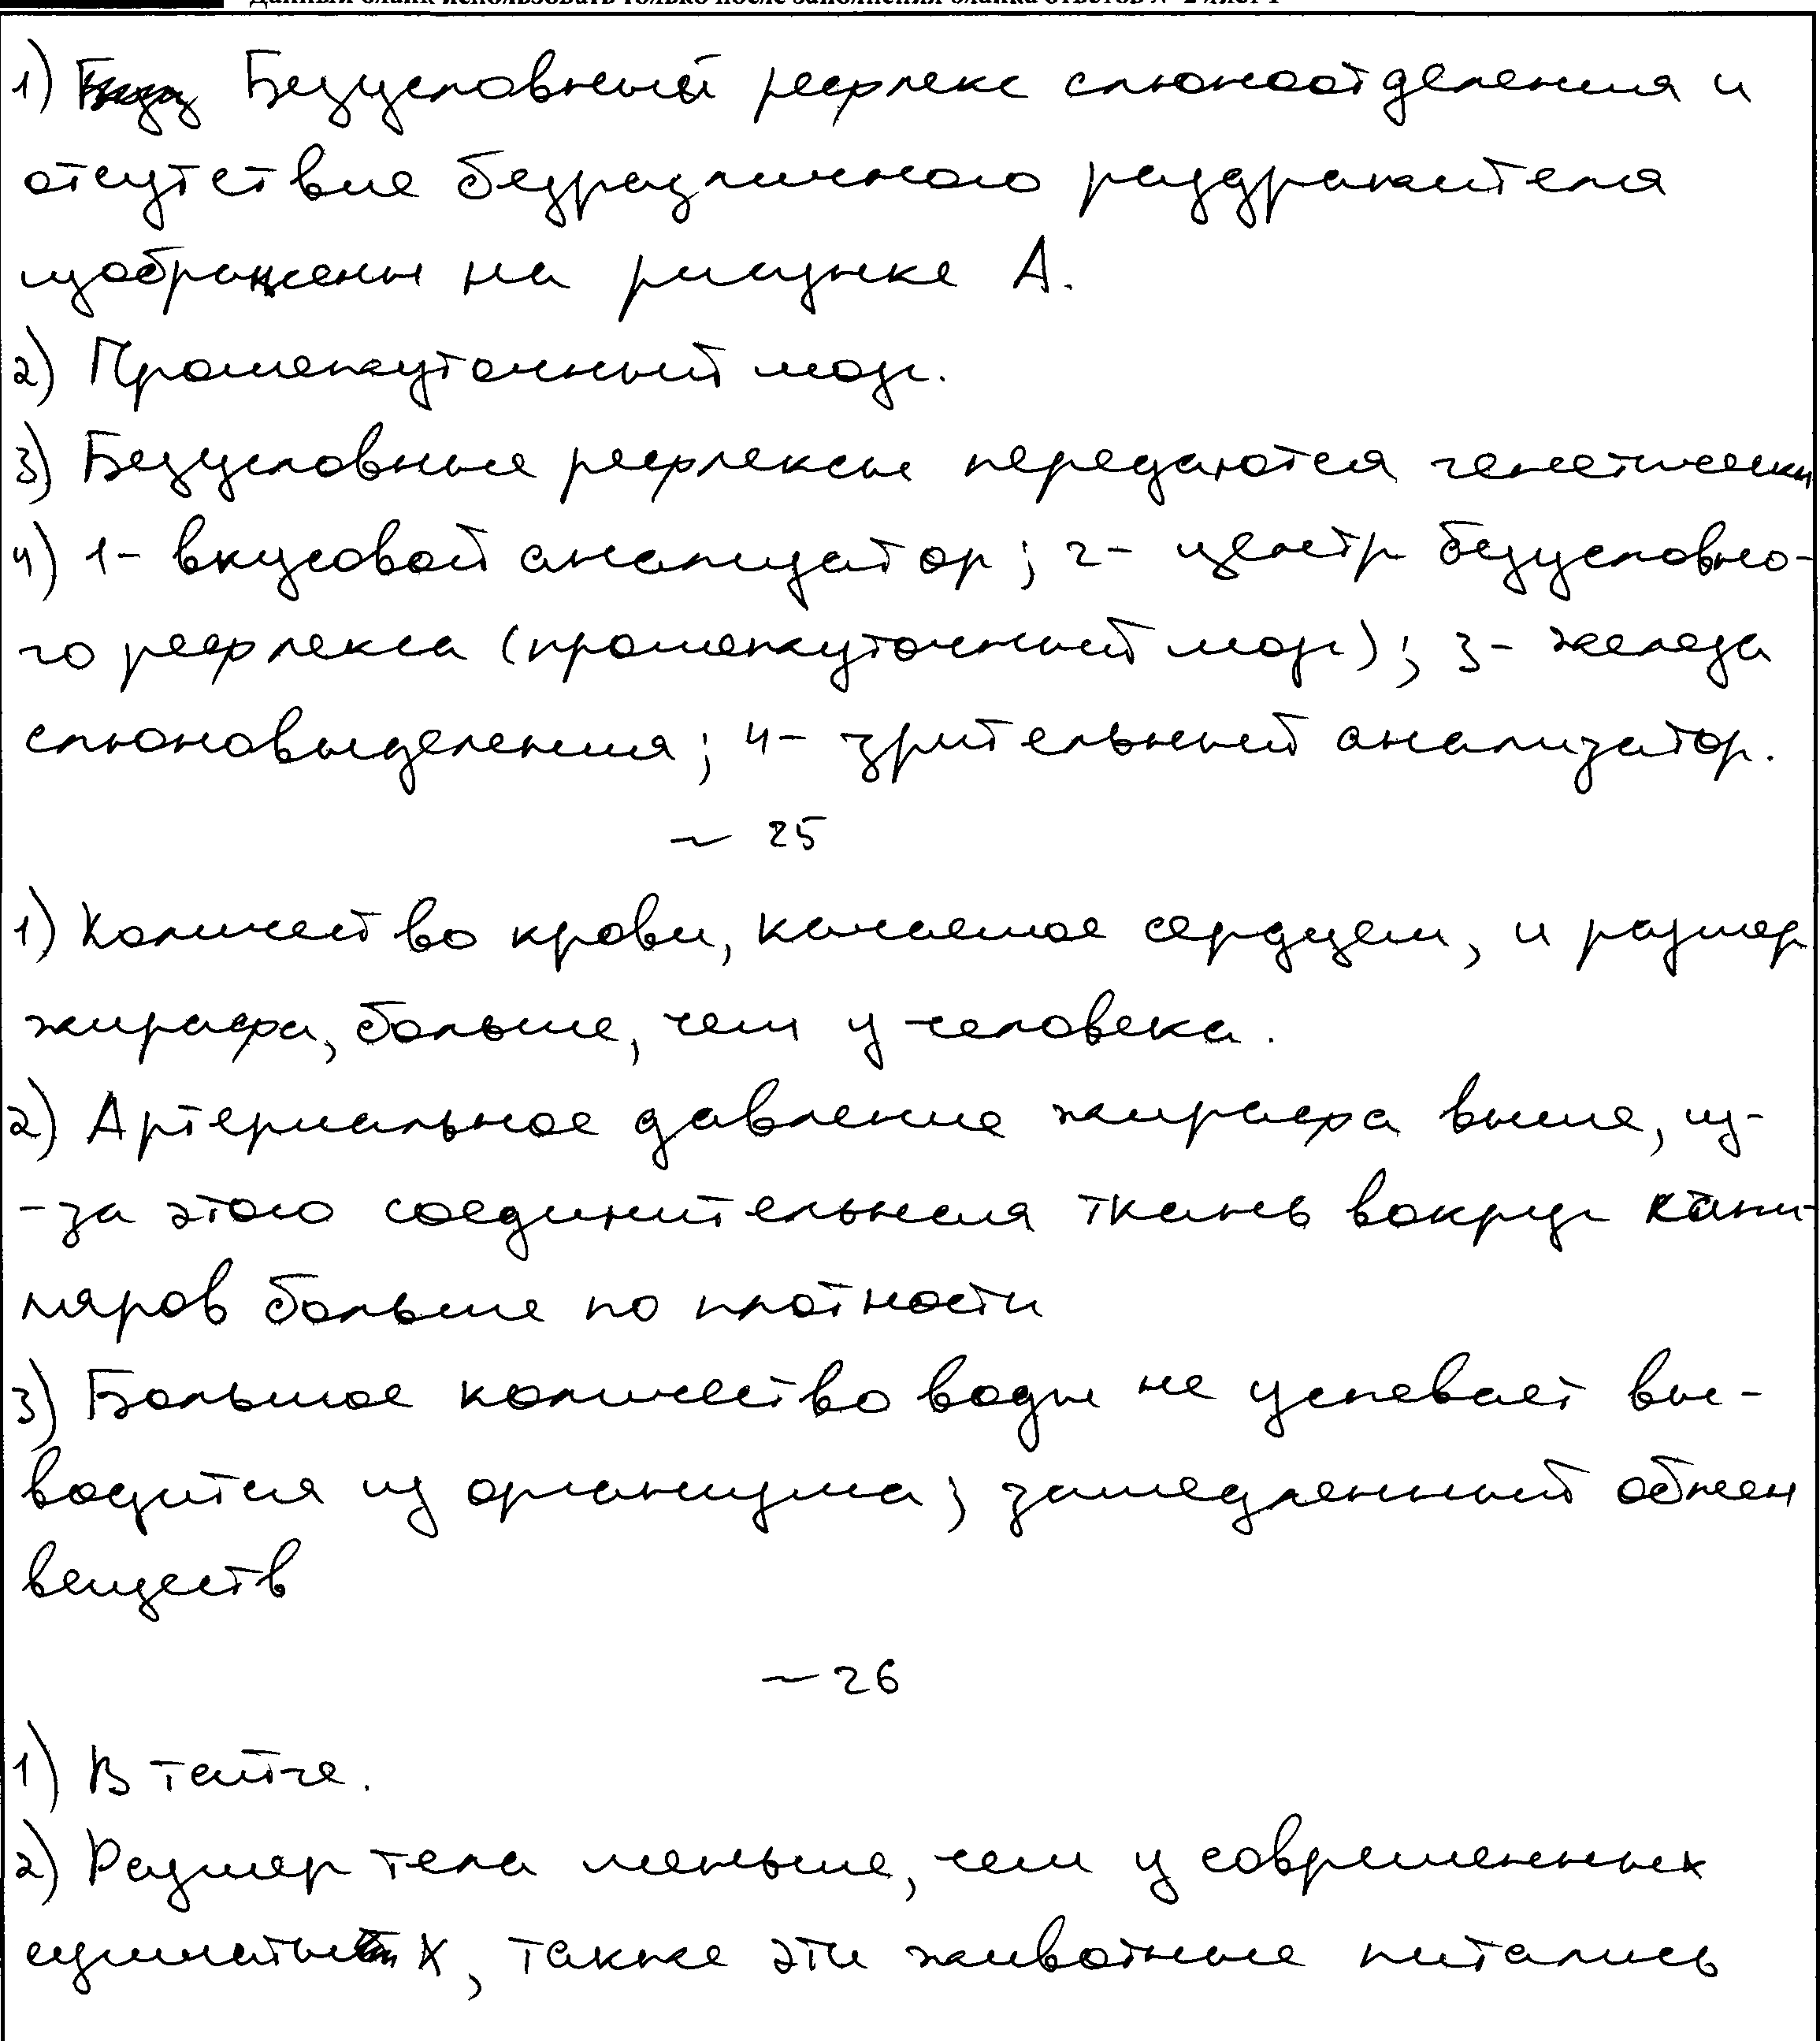 Данный бланк использовать только после заполнения бланка ответов № 2 лист 1
1) Безусловный рефлекс слюноотделения и
отсутствие безразличного раздражителя
изображены на рисунке А.
2) Промежуточный мозг.
3) Безусловные рефлексы передаются генетически
4) 1- вкусовой анализатор; 2- центр безусловно-
го рефлекса (промежуточный мозг); 3- железа
слюновыделения; 4- зрительный анализатор.
~ 25
1) Количество крови, качаемое сердцем, и размер
жирафа, больше, чем у человека.
2) Артериальное давление жирафа выше, из-
-за этого соединительная ткань вокруг капи-
ляров больше по плотности
3) Большое количество воды не успевает вы-
водится из организма; замедленный обмен
веществ
~ 26
1) В тайге.
2) Размер тела меньше, чем у современных
сумчатых, также эти животные питались